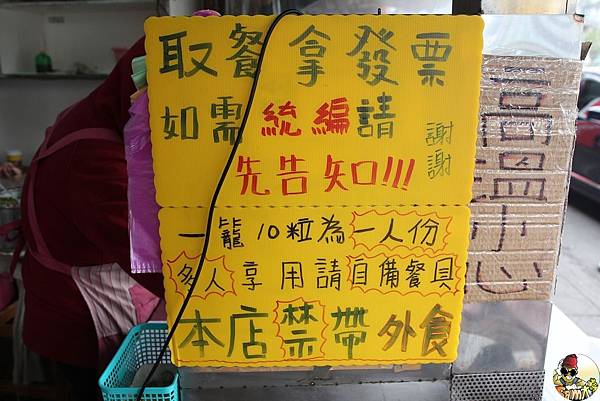 取餐拿發票
如需統編請
先告知!!!
謝謝
一籠10粒為一人份
多人享用請自備餐具
本店禁帶外食
高溫小心